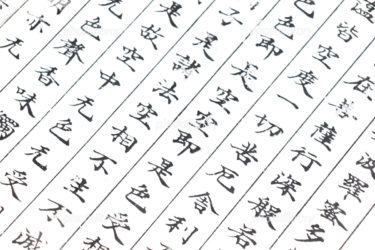 波羅蜜多
在菩薩行深般若
皆空度一切苦厄舍利
色即是空空即是色受
子是諸法空相不生不滅
是故空中无色无受
色聲香味
亦无